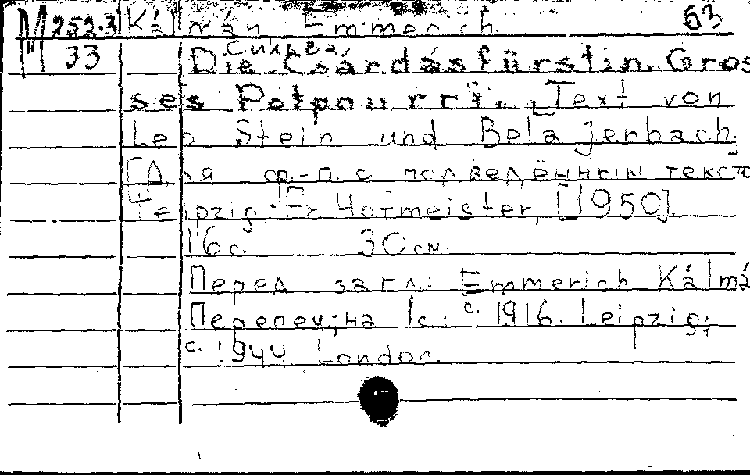 М 252.3 Kálmán Emmerich. 63
33 Die Csárdásfürstin. Gros
ses Potpourri. [Text von
Leo Stein und Bela Jenbach.
[Для ф-п. с подведённым текст
Leipzig: Fr. Hofmeister, [1950].
16 с. 30 см.
Перед загл.: Emmerich Kálmá
с. 1916. Leipzig;
с. 1944. London.